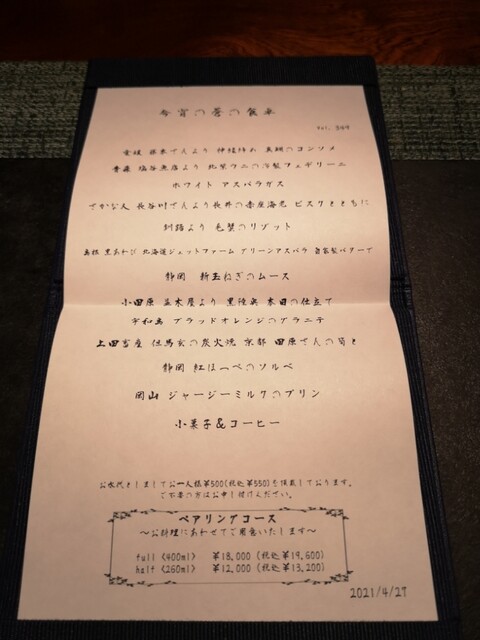 今宵の螢の餐卓
vol. 369
愛媛 藤本さんより 神経締め 真鯛のコンソメ
青森 塩谷魚店より 北紫ウニの冷製フェデリーニ
ホワイト アスパラガス
さかな人 長谷川さんより長井の赤座海老 ビスクとともに
釧路より 毛蟹のリゾット
島根 黒あわび 北海道ジェットファーム グリーンアスパラ 自家製バターで
静岡 新玉ねぎのムース
小田原 より 本日の仕立て
宇和島 ブラッドオレンジのグラニテ
上田畜産 但馬玄の炭火焼 京都 田原さんの筍と
静岡 紅ほっぺのソルベ
岡山 ジャージーミルクのプリン
小菓子&コーヒー
お水代としましてお一人様¥500(税込¥550)を頂戴しております。
ご不要の方はお申し付けください。
ペアリングコース
～お料理にあわせてご用意いたします～
full (400ml) ¥18,000 (税込¥19,600)
half (260ml) ¥12,000 (税込¥13,200)
2021/4/27